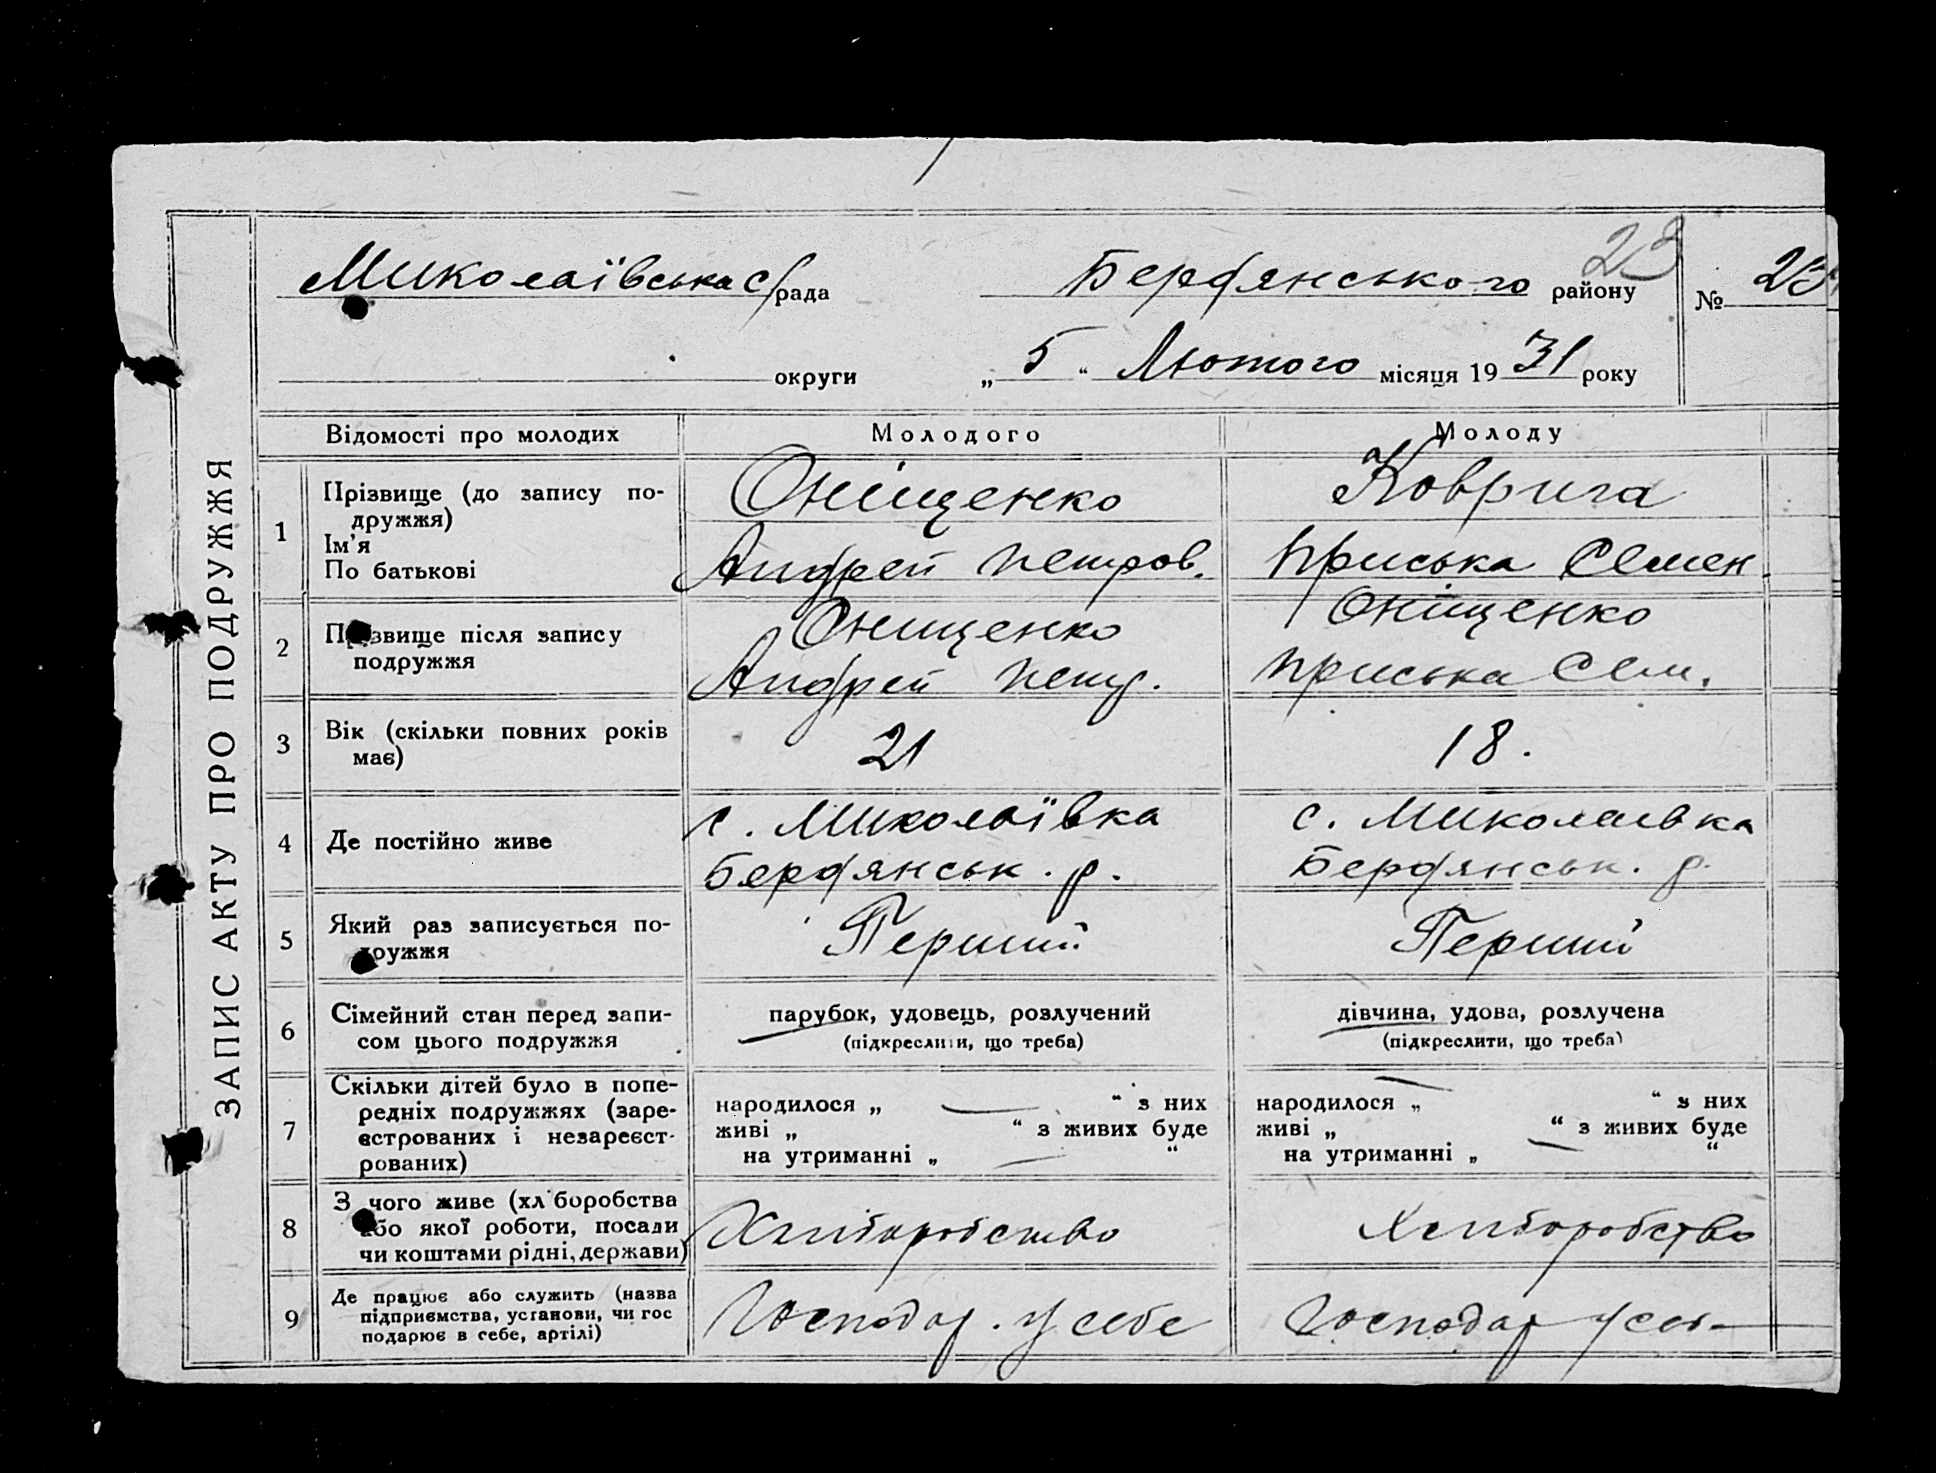 23
Миколаївська с/рада Бердянського району № 23
округи „ 5 “ Лютого місяця 19 31 року
ЗАПИС АКТУ ПРО ПОДРУЖЖЯ
Відомості про молодих Молодого Молоду
1 Прізвище (до запису по-
дружжя)
Ім'я
По батькові
Оніщенко
Андрей Петров.
Коврига
Приська Семен.
2 Прізвище після запису
подружжя
Онищенко
Андрей Петр.
Оніщенко
Приська Сем.
3 Вік (скільки повних років
має)
21
18.
4 Де постійно живе
с. Миколаївка
Бердянськ. р.
с. Миколаивка
Бердянськ. р.
5 Який раз записується по-
дружжя
Перший
Перший
6 Сімейний стан перед запи-
сом цього подружжя
парубок, удовець, розлучений
(підкреслити, що треба)
дівчина, удова, розлучена
(підкреслити, що треба)
7 Скільки дітей було в попе-
редніх подружжях (заре-
єстрованих і незареєст-
рованих)
народилося „ — “ з них
живі „ “ з живих буде
на утриманні „ — “
народилося „ — “ з них
живі „ — “ з живих буде
на утриманні „ “
8 З чого живе (хліборобства
або якої роботи, посади
чи коштами рідні, держави)
Хлиборобство
Хлиборобство
9 Де працює або служить (назва
підприємства, установи, чи гос
подарює в себе, артілі)
Господар. у себе
Господар у себе